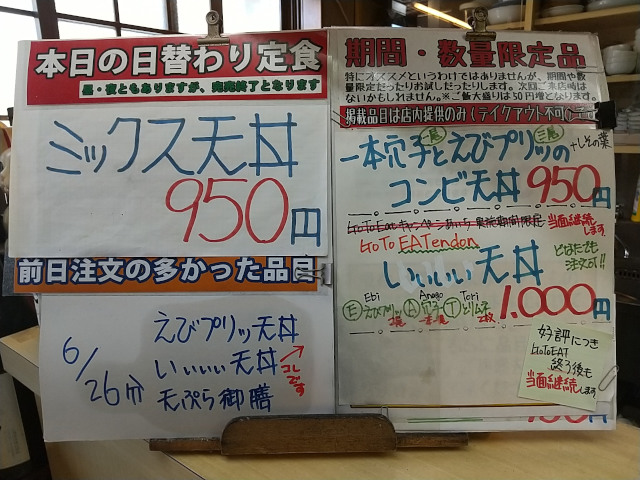 本日の日替わり定食
昼・夜ともありますが、完売終了となります
ミックス天丼
950円
前日注文の多かった品目
6/26分
えびプリッ天丼
いぃぃぃ天丼
天ぷら御膳
コレです
期間・数量限定品
特にオススメというわけではありませんが、期間や数
量限定だったりお試しだったりします。次回ご来店時は
ないかもしれません。※ご飯大盛りは50円増となります。
掲載品目は店内提供のみ(テイクアウト不可)
一尾 三尾
一本穴子とえびプリッの
+しその葉
コンビ天丼 950円
GoToEatキャンペーンあいち実施期間限定
当面継続します
GoTo EATendon
いぃぃぃ天丼
どなたでも
注文可!!
Ebi Anago Tori
Ⓔえびプリッ Ⓐ穴子 Ⓣとりムネ
1.000円
好評につき
GoToEAT
終了後も
当面継続します